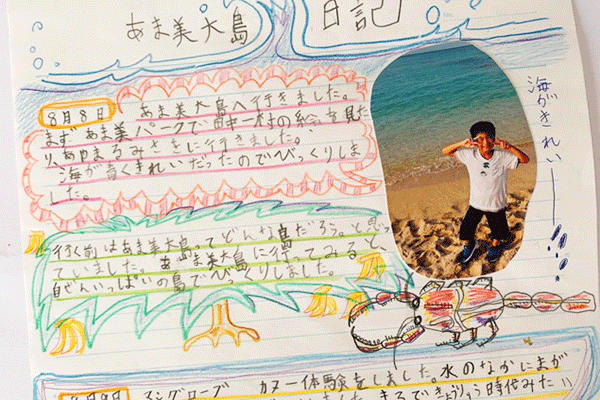 あま美大島 日記
8月8日 あま美大島へ行きました。
まず あま美パークで田中一村の絵を見た
り、あやまるみさきに行きました。
海が青くきれいだったのでびっくりしま
した。
海がきれいー
行く前はあま美大島ってどんな島だろう。と思っ
ていました。あま美大島に行ってみると、
自ぜんいっぱいの島でびっくりしました。
8月9日 マングローブ カヌー体験をしました。水のなかにまが
まるできょうりゅう時代みたい